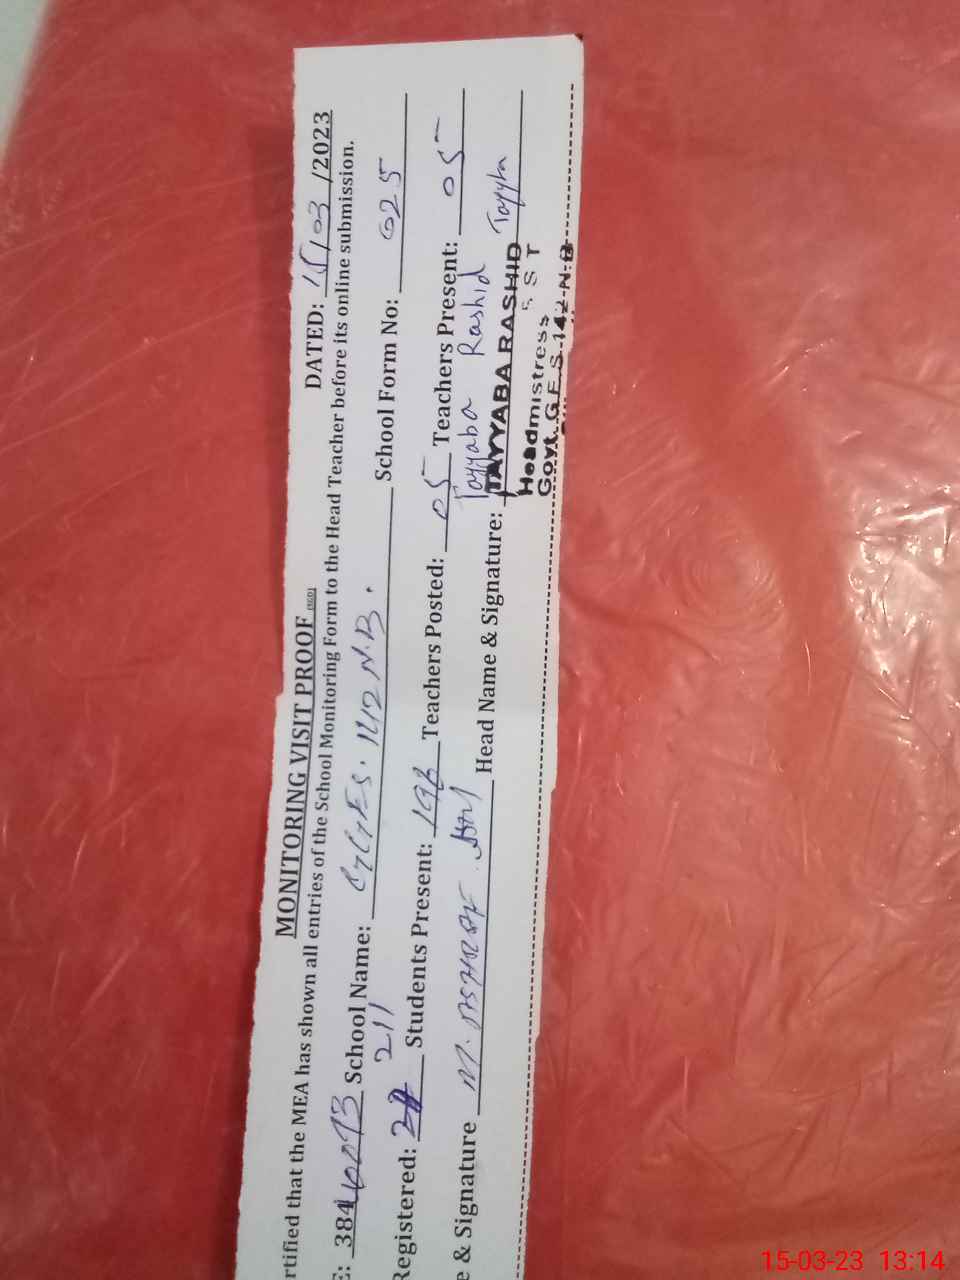 MONITORING VISIT PROOF
DATED: 15/03/2023
rtified that the MEA has shown all entries of the School Monitoring Form to the Head Teacher before its online submission.
E: 38410093 School Name: GGES. 142 N.B. School Form No: 025
Registered: 211 Students Present: 196 Teachers Posted: 05 Teachers Present: 05
e & Signature M. ASHRAF Head Name & Signature: Tayyaba Rashid Tayyba
TAYYABA RASHID
Headmistress S S T
Govt. G.E.S 142-N.B
15-03-23 13:14